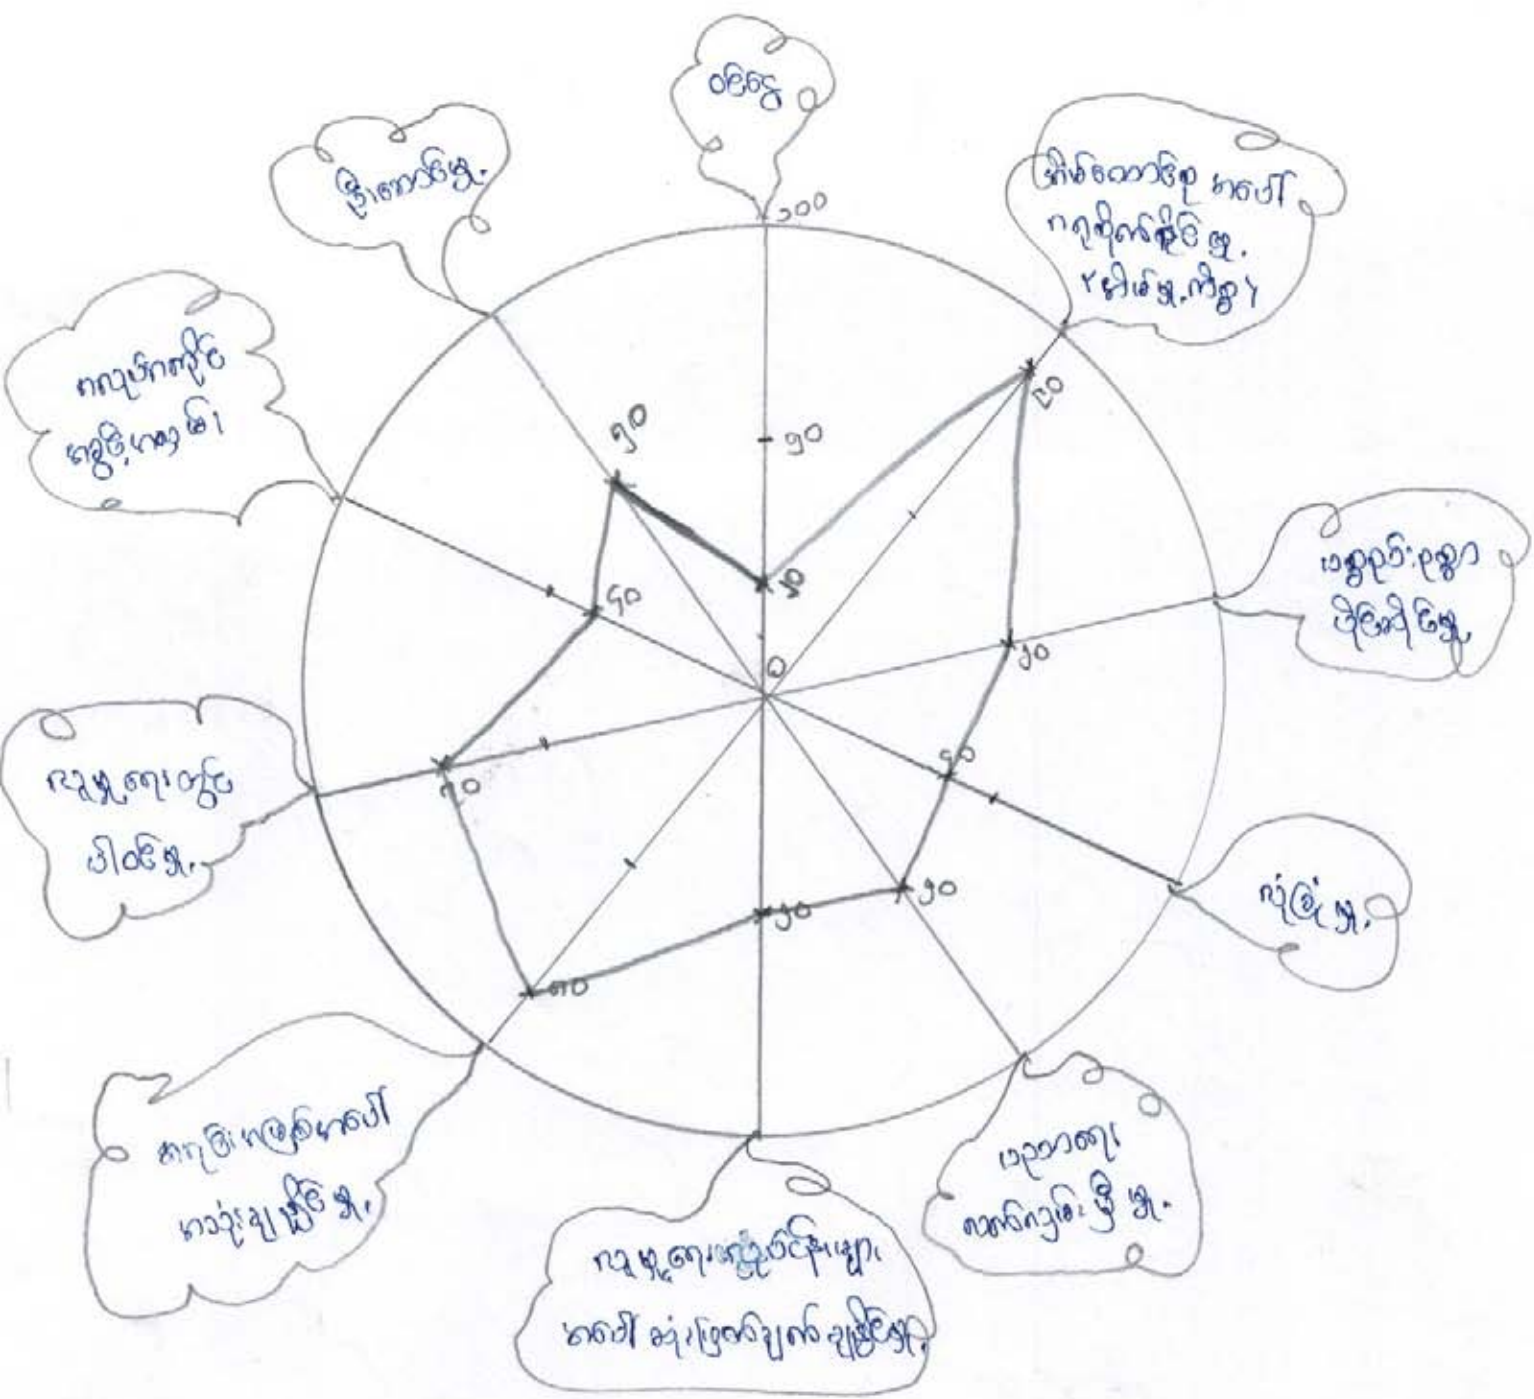 ဝင်ငွေ
၁၀၀
အိမ်ထောင်စု အပေါ်
ဂရုစိုက်နိုင်မှု
(အိမ်မှုကိစ္စ)
၈၀
ပစ္စည်းဥစ္စာ
ပိုင်ဆိုင်မှု
၅၀
လုံခြုံမှု
၄၀
ပညာရေး
တတ်ကျွမ်းမှု
၅၀
လူမှုရေးလုပ်ငန်းများ
အပေါ် ဆုံးဖြတ်ချက်ချနိုင်မှု
၅၀
အရင်းအမြစ်အပေါ်
အသုံးချနိုင်မှု
၈၀
လူမှုရေးတွင်
ပါဝင်မှု
၇၀
အလုပ်အကိုင်
အခွင့်အလမ်း
၄၀
ဦးဆောင်မှု
၅၀
၅၀
၀